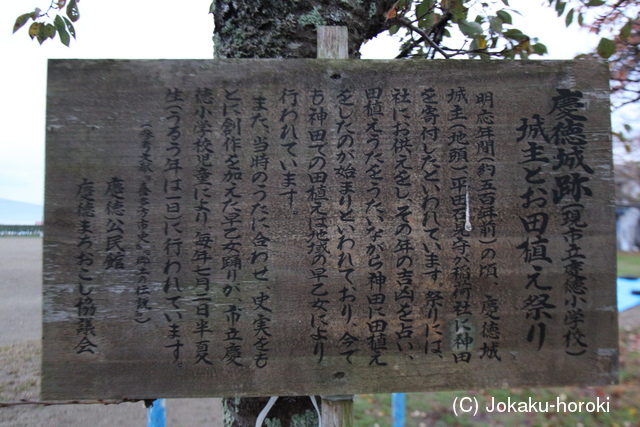 慶徳城跡(現市立慶徳小学校)
城主とお田植え祭り
明応年間(約五百年前)の頃、慶徳城
城主(地頭)平田石見守が稲荷社に神田
を寄付したといわれています。祭りには、
社にお供えをし、その年の吉凶を占い、
田植えうたをうたいながら神田に田植え
をしたのが始まりといわれており、今で
も神田での田植えは地域の早乙女により
行われています。
また、当時のうたに合わせ、史実をも
とに創作を加えた早乙女踊りが、市立慶
徳小学校児童により、毎年七月二日半夏
生(うるう年は一日)に行われています。
慶徳公民館
慶徳まちおこし協議会
(C) Jokaku-horoki